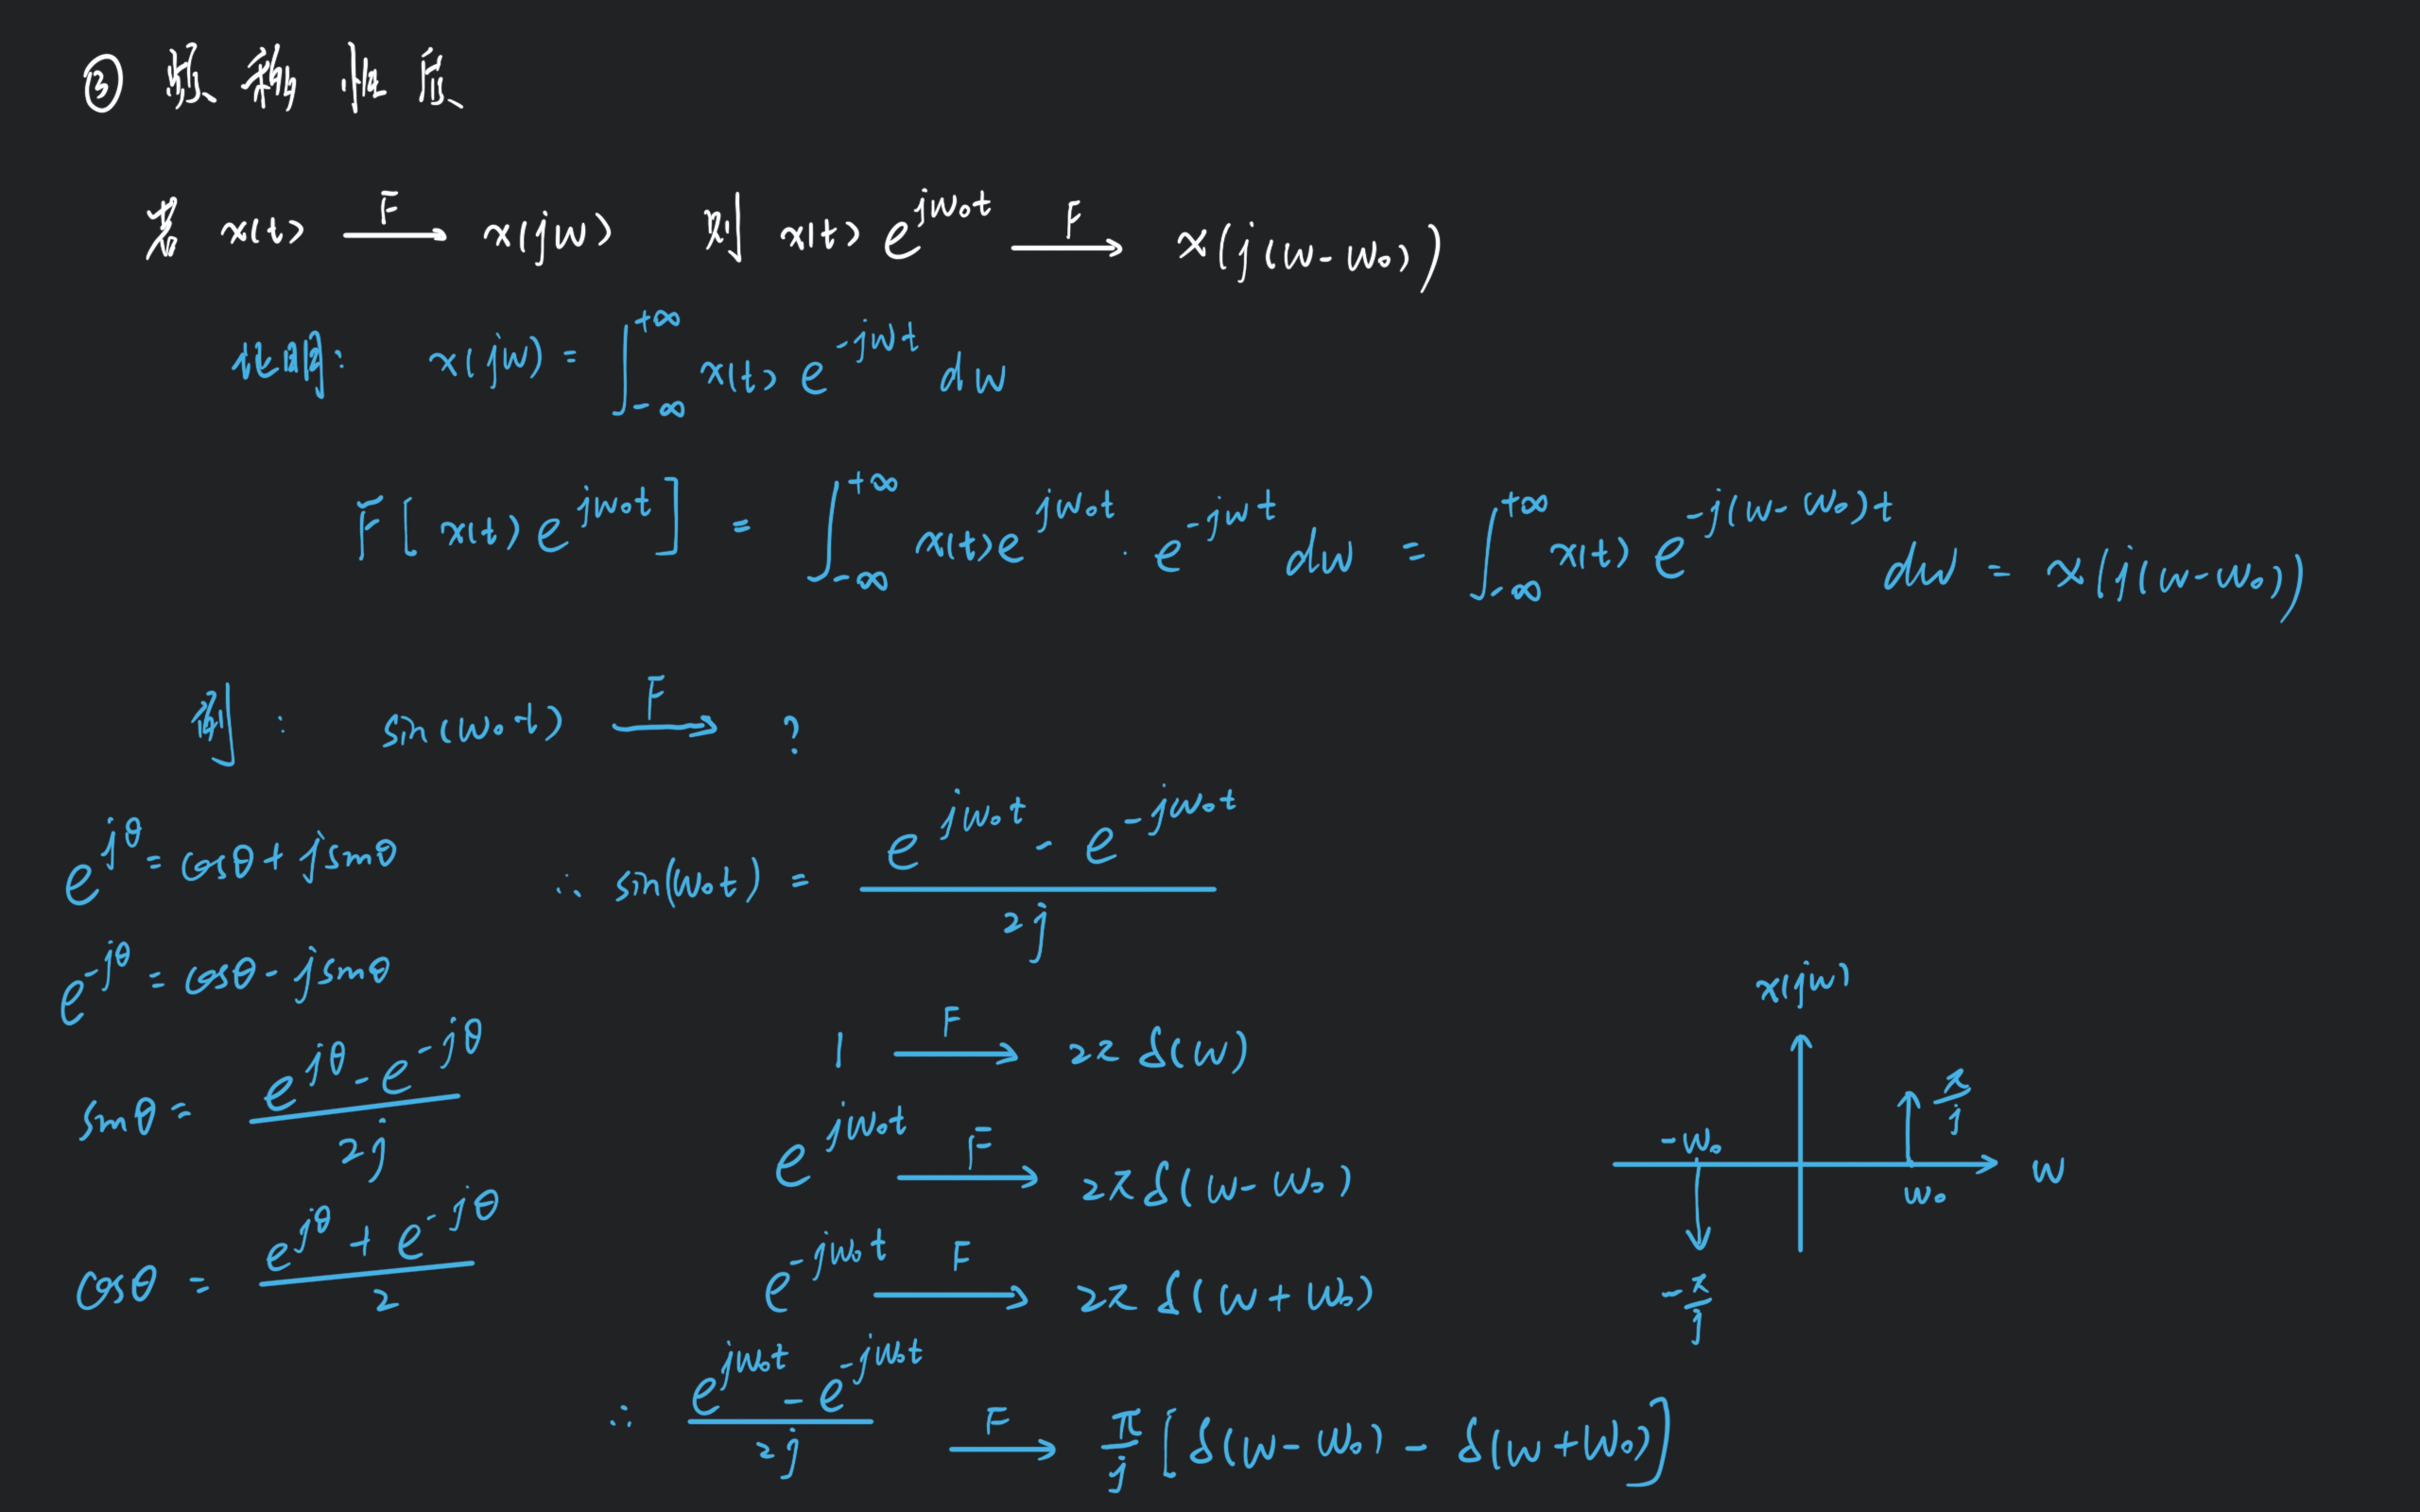 ③ 频移性质
若 x(t) —F→ x(jw) 则 x(t) e^{jw₀t} —F→ x(j(w-w₀))
证明: x(jw) = ∫_{-∞}^{+∞} x(t) e^{-jwt} dw
F[x(t) e^{jw₀t}] = ∫_{-∞}^{+∞} x(t) e^{jw₀t} · e^{-jwt} dw = ∫_{-∞}^{+∞} x(t) e^{-j(w-w₀)t} dw = x(j(w-w₀))
例: sin(w₀t) —F→ ?
e^{jθ} = cosθ + jsinθ
e^{-jθ} = cosθ - jsinθ
sinθ = (e^{jθ} - e^{-jθ}) / 2j
cosθ = (e^{jθ} + e^{-jθ}) / 2
∴ sin(w₀t) = (e^{jw₀t} - e^{-jw₀t}) / 2j
1 —F→ 2π δ(w)
e^{jw₀t} —F→ 2π δ(w-w₀)
e^{-jw₀t} —F→ 2π δ(w+w₀)
∴ (e^{jw₀t} - e^{-jw₀t}) / 2j —F→ π/j [δ(w-w₀) - δ(w+w₀)]
x(jw)
π/j
-w₀
w₀
w
-π/j